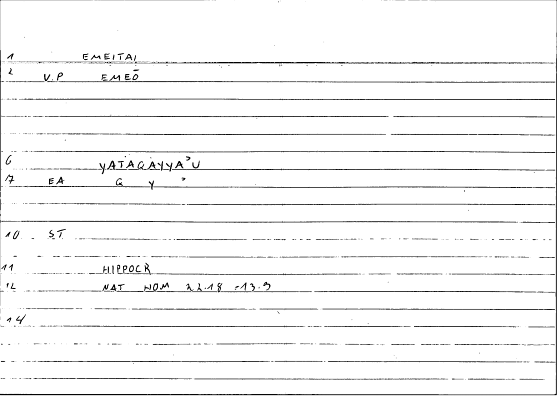 1 EMEITAI
2 V.P EMEŌ
6 YATAQAYYA'U
7 EA Q Y '
10 ST.
11 HIPPOCR
12 NAT HOM 22.18 -13.9
14